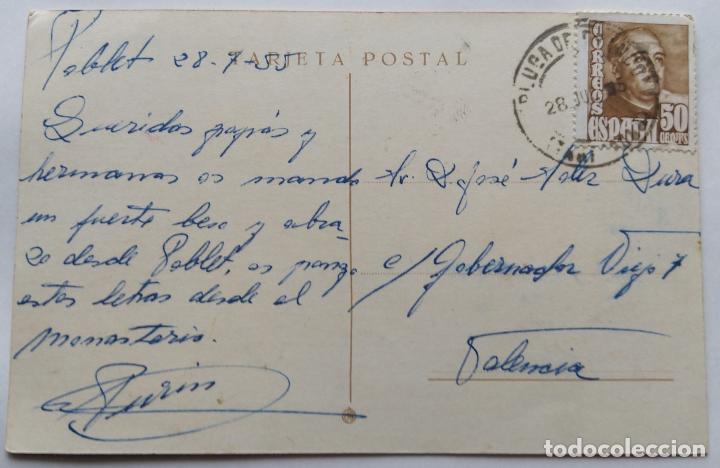 TARJETA POSTAL
Poblet 28-7-55
Queridos papás y
hermanas os mando
un fuerte beso y abra-
zo desde Poblet, os pongo
estas letras desde el
monasterio.
Sr. D José Dura
c/ Gobernador Viejo 7
Valencia
28 JUL 55
CORREOS
ESPAÑA 50
CENTS
todocoleccion.net